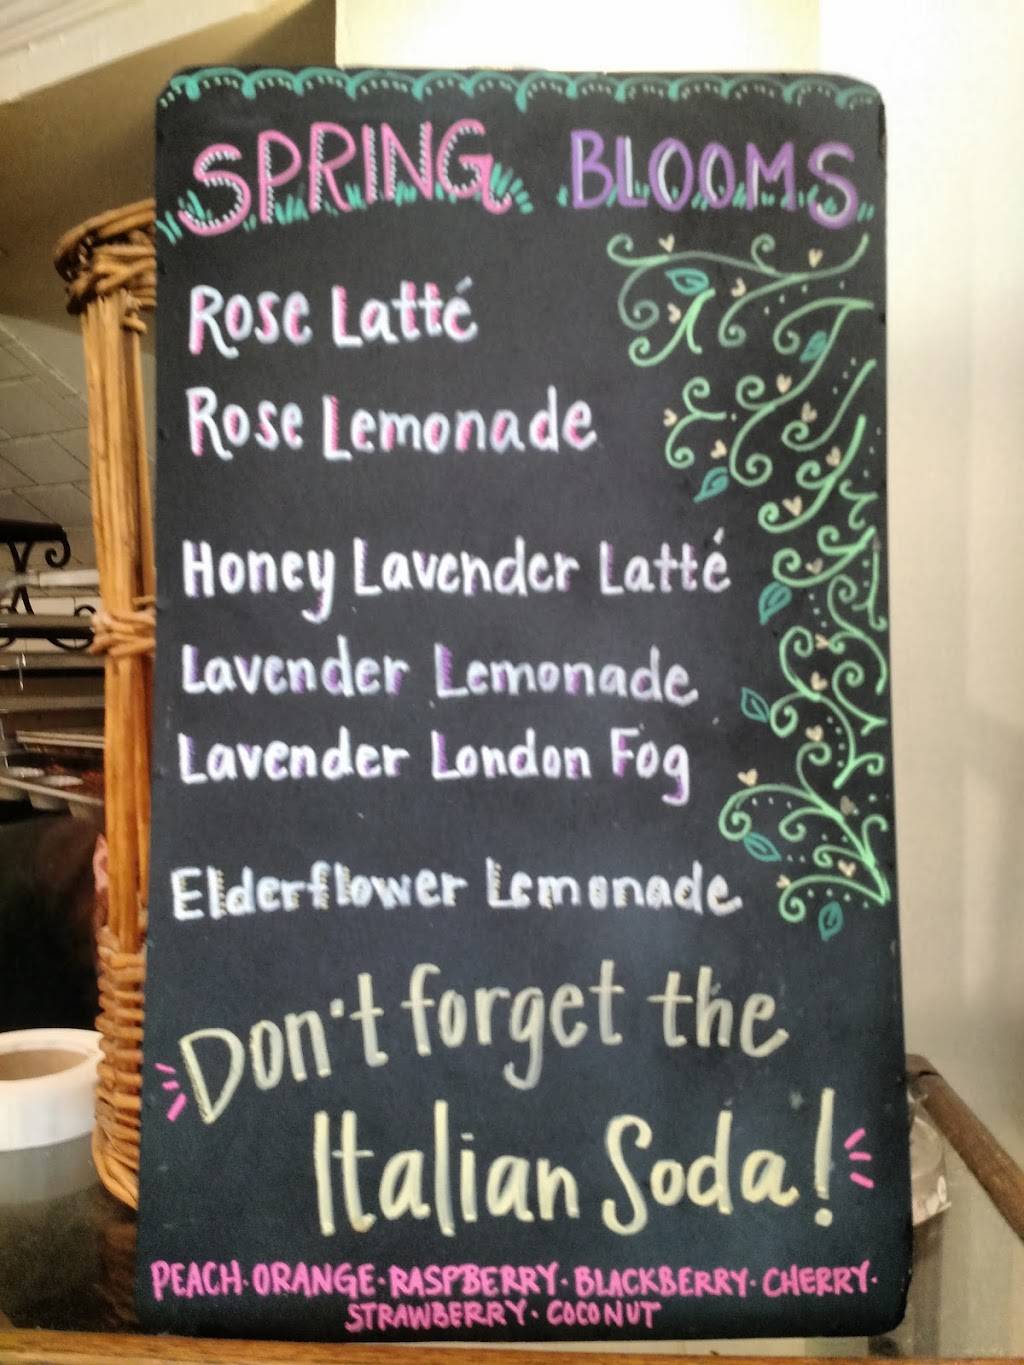 SPRING BLOOMS
Rose Latté
Rose Lemonade
Honey Lavender Latté
Lavender Lemonade
Lavender London Fog
Elderflower Lemonade
Don't forget the
Italian Soda!
PEACH · ORANGE · RASPBERRY · BLACKBERRY · CHERRY ·
STRAWBERRY · COCONUT